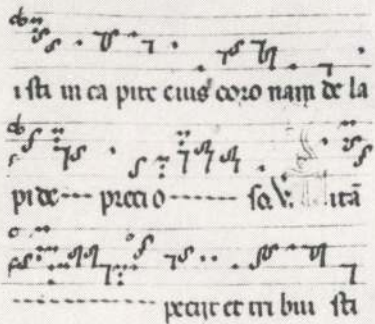 isti in capite eius coronam de la
pide precio so. V. itā
petiit et tribui sti